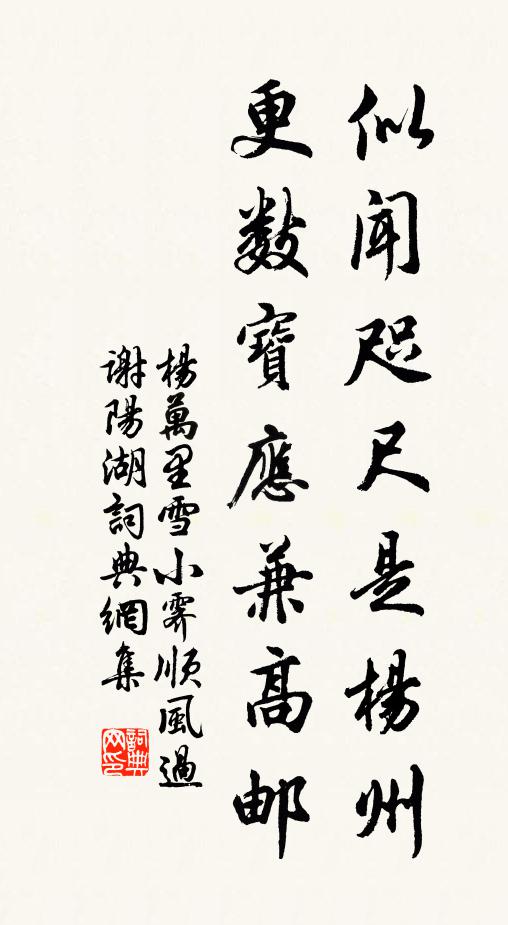 似聞咫尺是楊州
更數寶應兼高邮
楊萬里雪小霽順風過
謝陽湖詞典網集
詞典网印